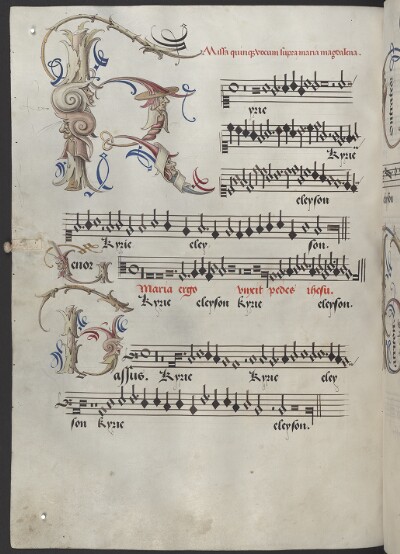 Missa quinq; vocum supra maria magdalena.
K yrie
Kyrie
eleyson
Kyrie eley son.
Tenor
Maria ergo unxit pedes ihesu.
Kyrie eleyson Kyrie eleyson.
Bassus. Kyrie Kyrie eley
son Kyrie eleyson.